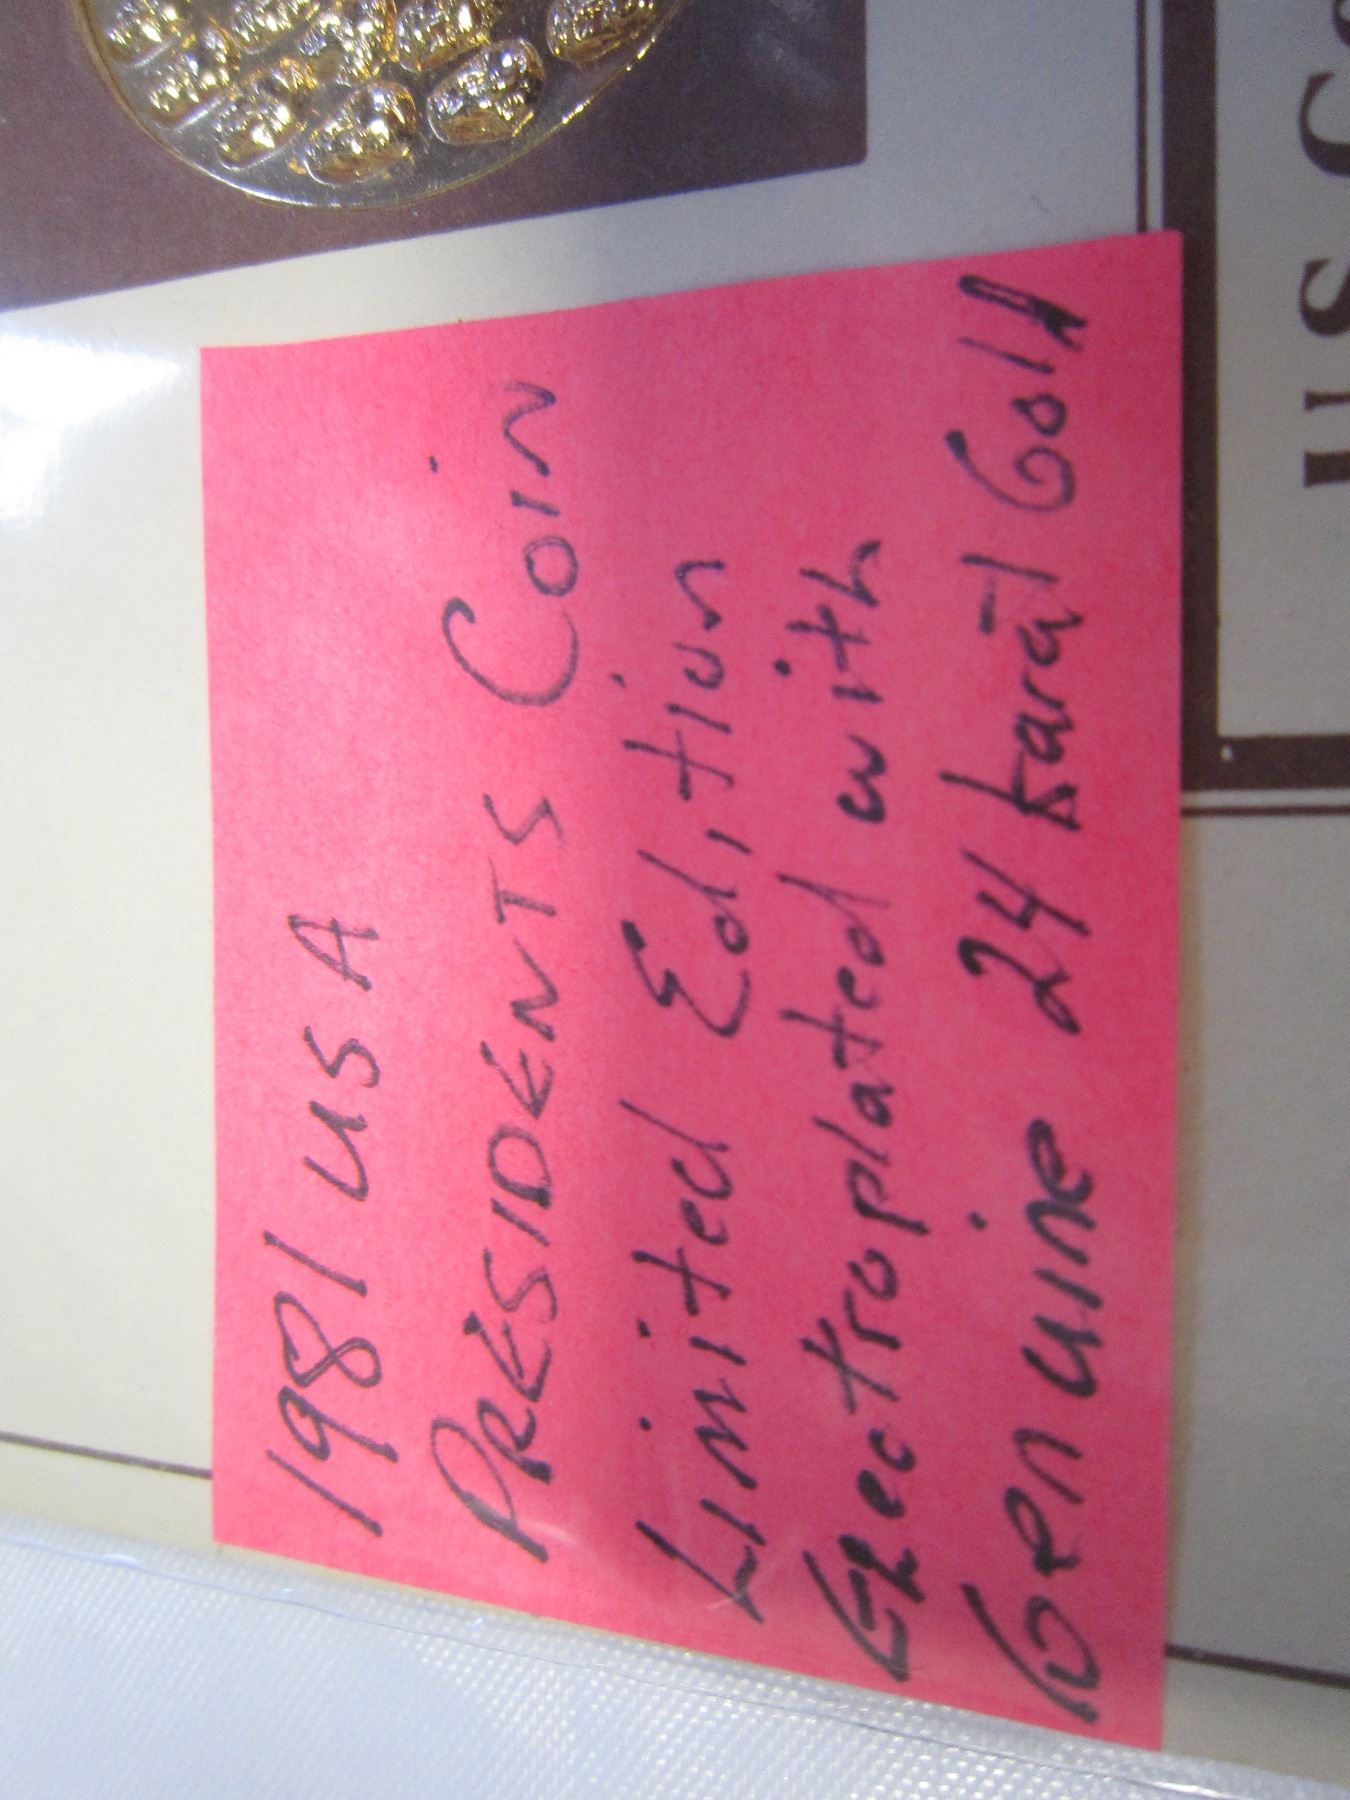 1981 USA
PRESIDENTS COIN
Limited Edition
Electroplated with
Genuine 24 karat Gold